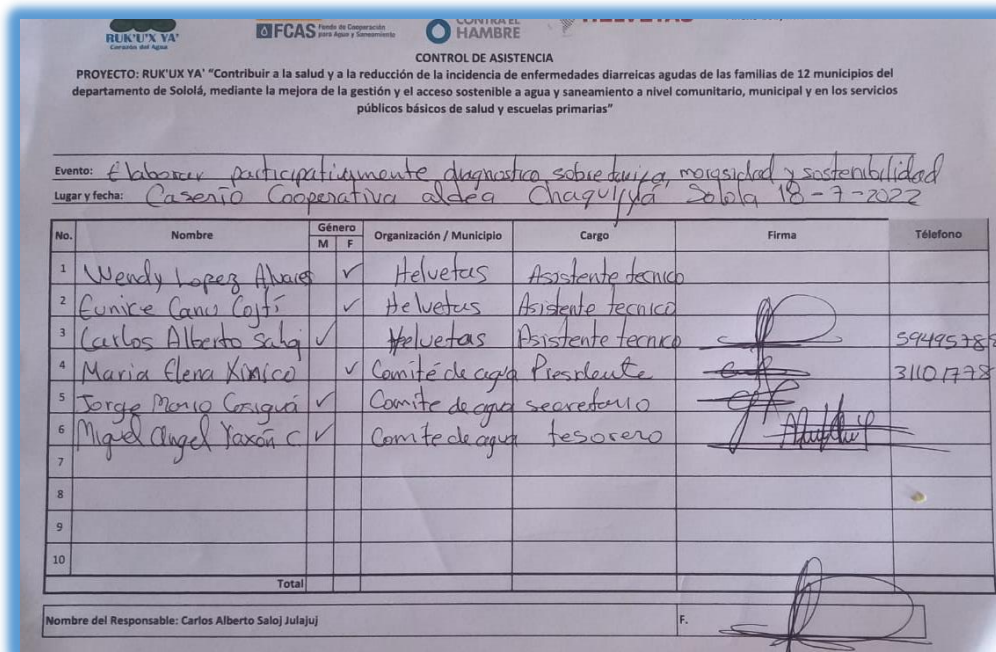 RUK'U'X YA'
Corazón del Agua
FCAS Fondo de Cooperación para Agua y Saneamiento
CONTRA EL HAMBRE
HELVETAS
CONTROL DE ASISTENCIA
PROYECTO: RUK'UX YA' "Contribuir a la salud y a la reducción de la incidencia de enfermedades diarreicas agudas de las familias de 12 municipios del
departamento de Sololá, mediante la mejora de la gestión y el acceso sostenible a agua y saneamiento a nivel comunitario, municipal y en los servicios
públicos básicos de salud y escuelas primarias"
Evento: Elaborar participativamente diagnostico sobre morosidad y sostenibilidad
Lugar y fecha: Caserio Cooperativa aldea Chaquijyá Sololá 18-7-2022
No. Nombre Género M F Organización / Municipio Cargo Firma Télefono
1 Wendy Lopez ✓ Helvetas Asistente tecnico
2 Eunice Canu Cojtí ✓ Helvetas Asistente tecnico
3 Carlos Alberto Saloj ✓ Helvetas Asistente tecnico 59495788
4 Maria Elena Ximico ✓ Comité de agua Presidente 31101778
5 Jorge Mario Cosiguá ✓ Comite de agua secretario
6 Miguel angel Yaxón C. ✓ Comite de agua tesorero
7
8
9
10
Total
Nombre del Responsable: Carlos Alberto Saloj Julajuj F.